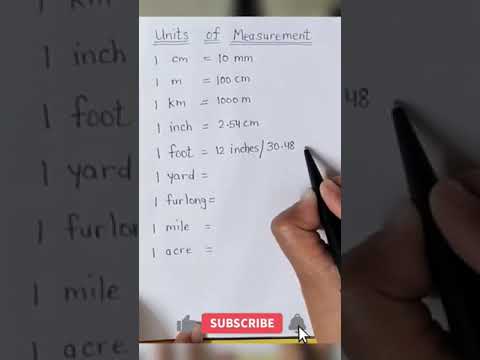 Units of Measurement
1 cm = 10 mm
1 m = 100 cm
1 km = 1000 m
1 inch = 2.54 cm
1 foot = 12 inches/30.48
1 yard =
1 furlong =
1 mile =
1 acre =
SUBSCRIBE